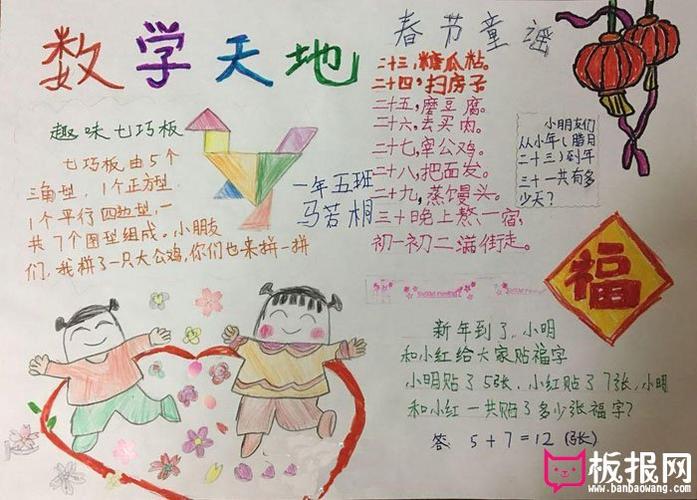 数学天地
春节童谣
二十三，糖瓜粘。
二十四，扫房子
二十五，磨豆腐。
二十六，去买肉。
二十七，宰公鸡。
二十八，把面发。
二十九，蒸馒头。
三十晚上熬一宿，
初一初二满街走。
趣味七巧板
七巧板由5个
三角型，1个正方型
1个平行四边型，一
共7个图型组成。小朋友
们，我拼了一只大公鸡，你们也来拼一拼
一年五班
马若桐
小朋友们
从小年（腊月
二十三）到年
三十一共有多
少天？
福
新年到了，小明
和小红给大家贴福字
小明贴了5张，小红贴了7张，小明
和小红一共贴了多少张福字？
答 5+7=12（张）
板报网
www.banbaowang.com